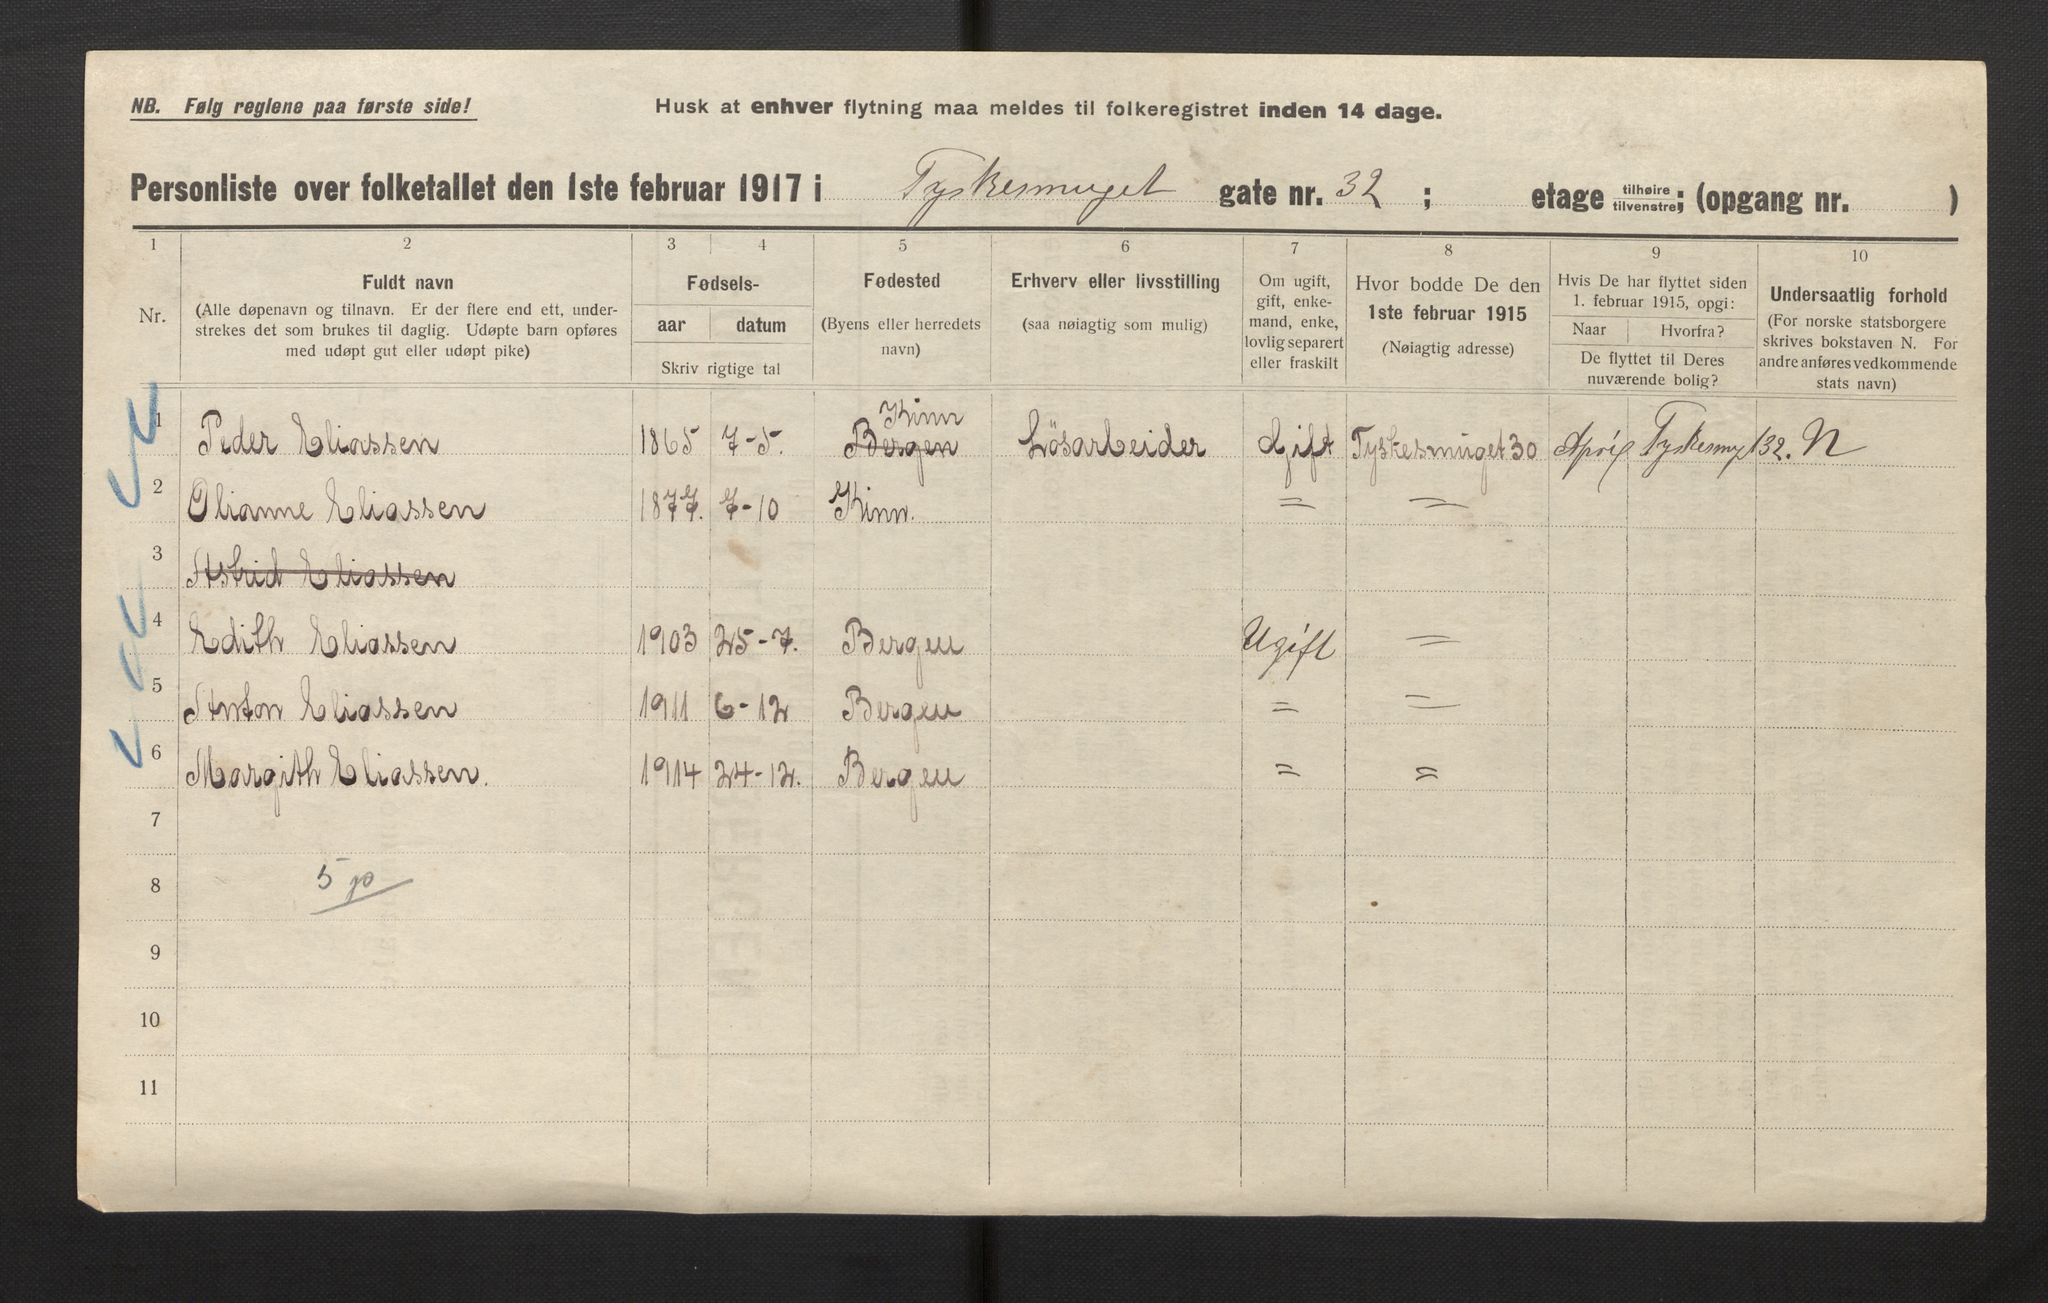 NB. Følg reglene paa første side!
Husk at enhver flytning maa meldes til folkeregistret inden 14 dage.
Personliste over folketallet den 1ste februar 1917 i Tyskesmuget gate nr. 32 ; etage tilhøire tilvenstre ; (opgang nr. )
1 2 3 4 5 6 7 8 9 10
Nr.
Fuldt navn
(Alle døpenavn og tilnavn. Er der flere end ett, under-
strekes det som brukes til daglig. Udøpte barn opføres
med udøpt gut eller udøpt pike)
Fødsels-
aar datum
Skriv rigtige tal
Fødested
(Byens eller herredets
navn)
Erhverv eller livsstilling
(saa nøiagtig som mulig)
Om ugift,
gift, enke-
mand, enke,
lovlig separert
eller fraskilt
Hvor bodde De den
1ste februar 1915
(Nøiagtig adresse)
Hvis De har flyttet siden
1. februar 1915, opgi:
Naar Hvorfra?
De flyttet til Deres
nuværende bolig?
Undersaatlig forhold
(For norske statsborgere
skrives bokstaven N. For
andre anføres vedkommende
stats navn)
Kinn
1 Peder Eliassen 1865 7-5. Bergen Lösarbeider Gift Tyskesmuget 30 April 32. N
2 Olianne Eliassen 1877. 7-10 Kinn. = =
3 Astrid Eliassen
4 Edith Eliassen 1903 25-7. Bergen Ugift =
5 Anton Eliassen 1911 6-12 Bergen = =
6 Margith Eliassen. 1914 24-12. Bergen = =
7
8 5
9
10
11